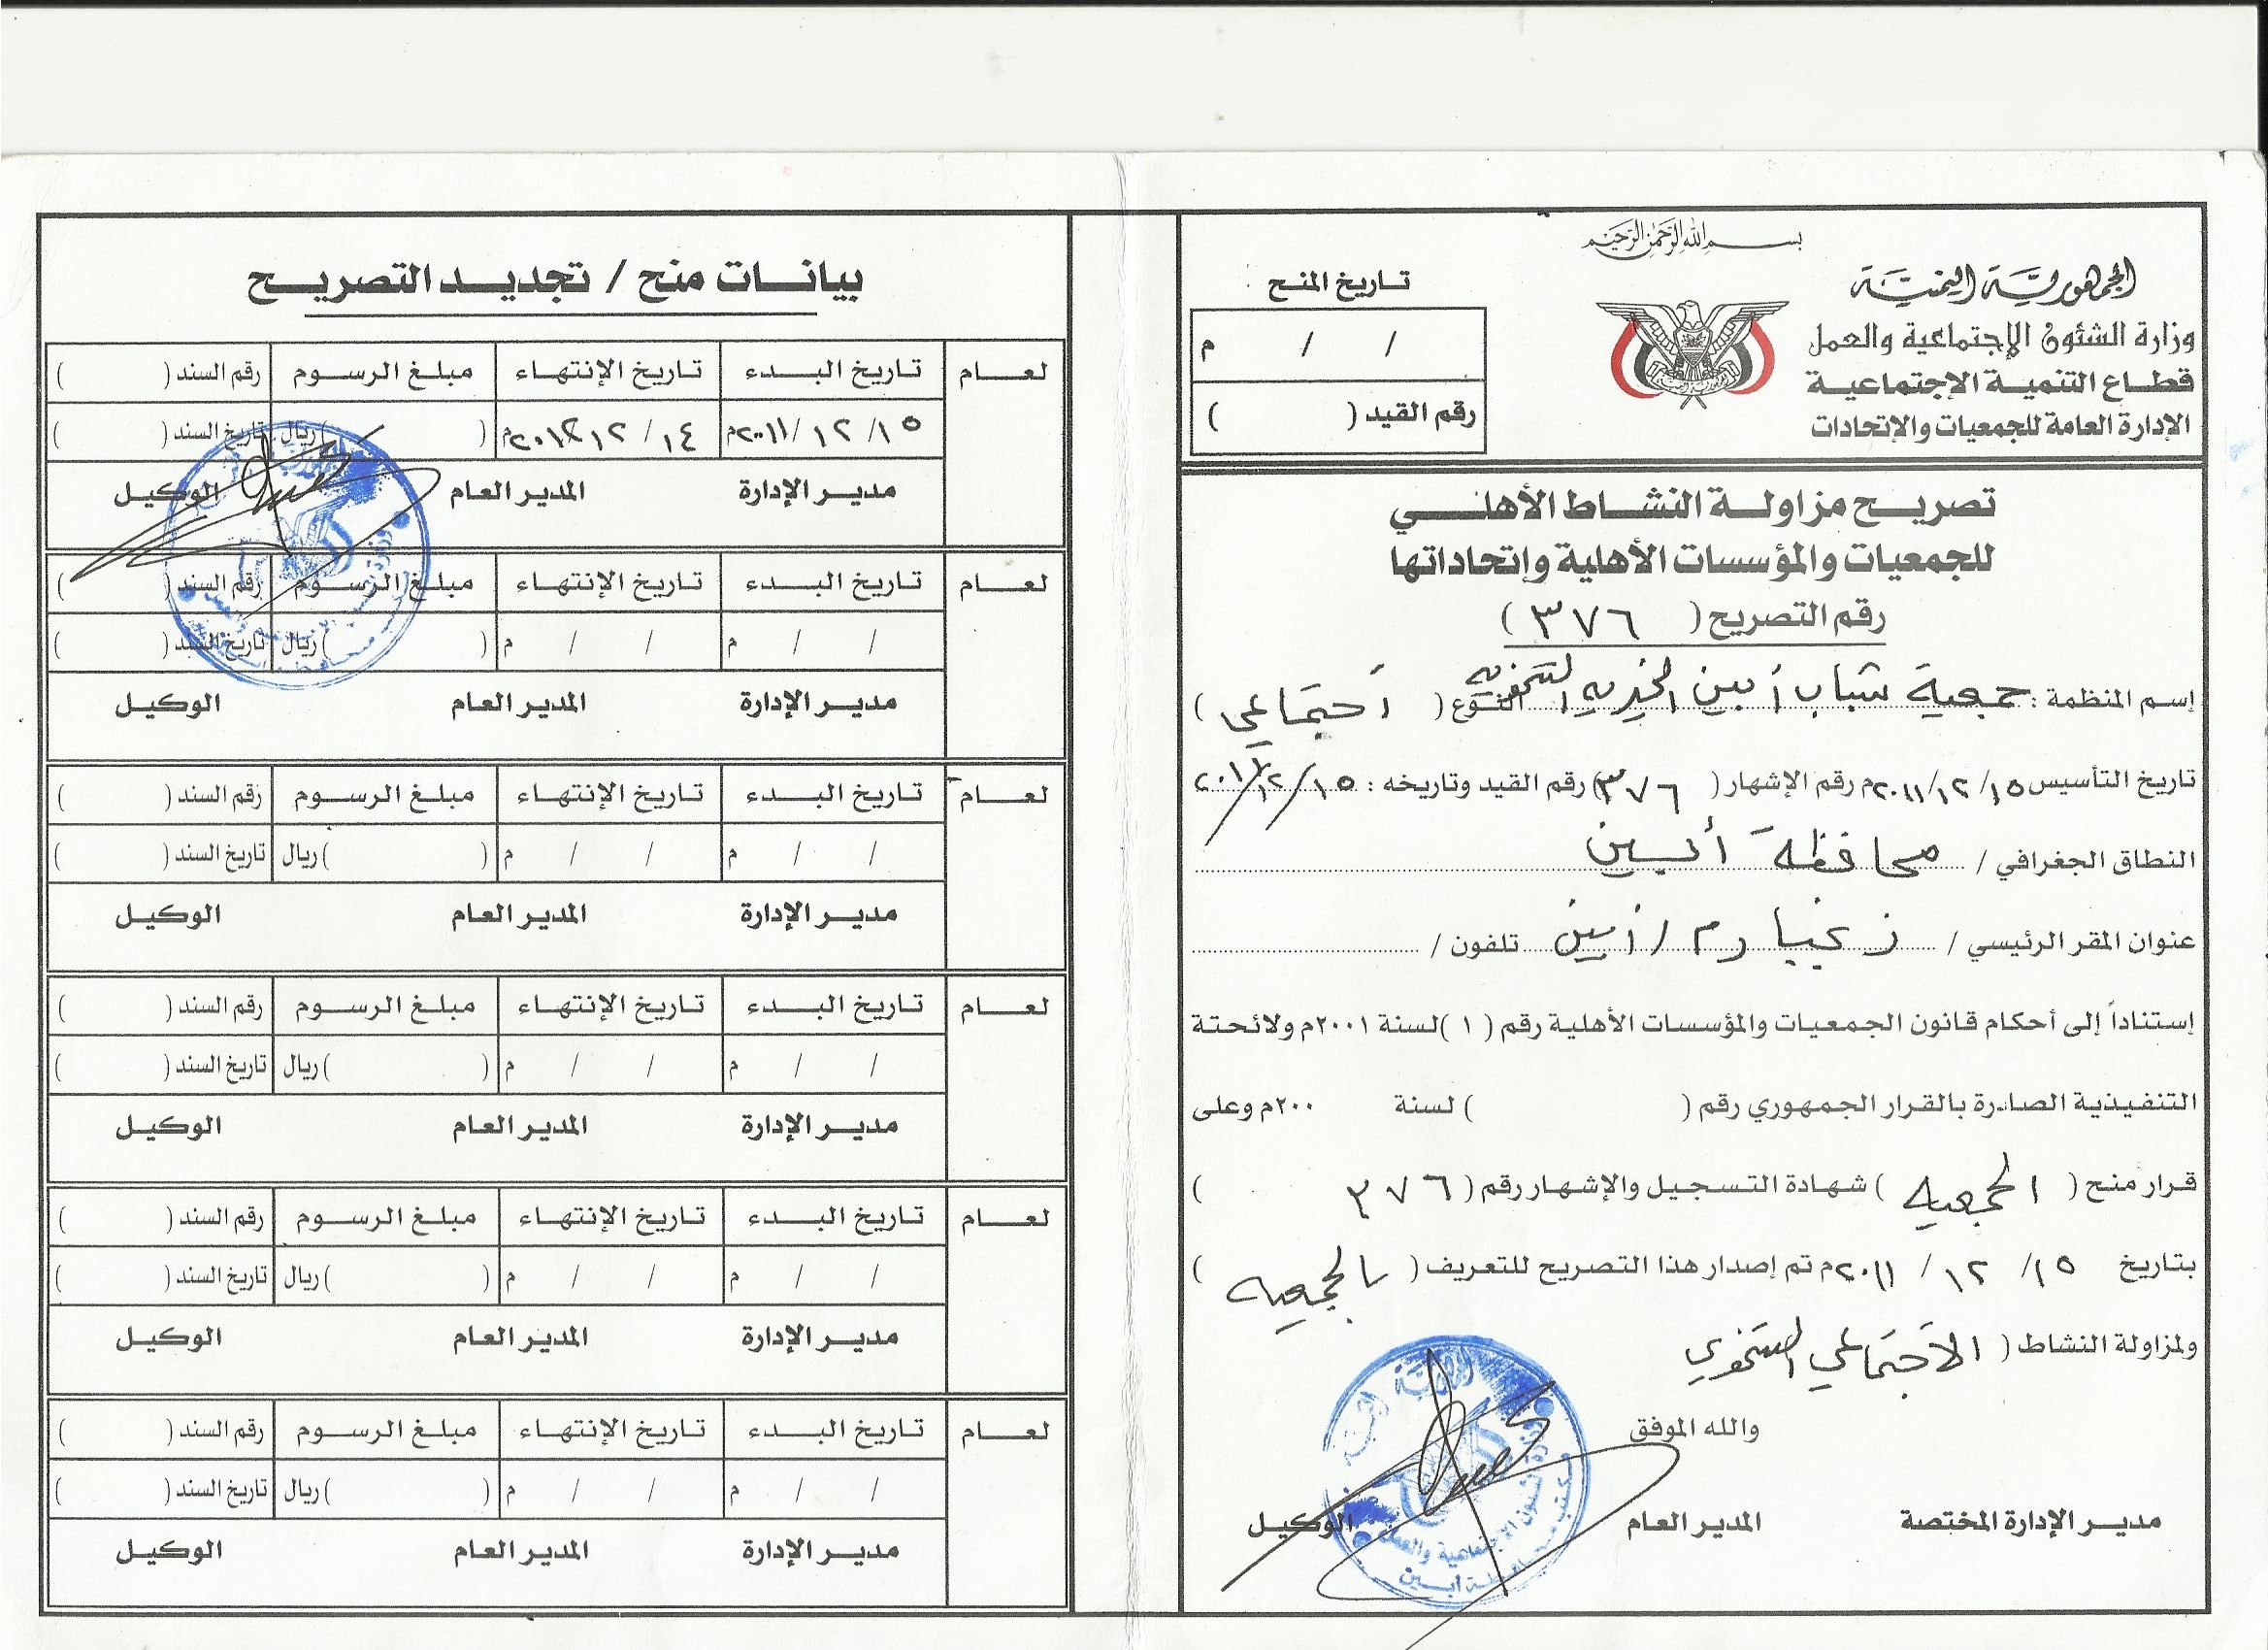 بسم الله الرحمن الرحيم
الجمهورية اليمنية
وزارة الشئون الإجتماعية والعمل
قطاع التنمية الإجتماعية
الإدارة العامة للجمعيات والإتحادات
تاريخ المنح
/ / م
رقم القيد ( )
تصريح مزاولة النشاط الأهلي
للجمعيات والمؤسسات الأهلية وإتحاداتها
رقم التصريح ( ٣٧٦ )
إسم المنظمة : جمعية شباب أبين الخيريه التنمويه النوع ( أجتماعي )
تاريخ التأسيس ١٥/ ١٢/ ٢٠١١م رقم الإشهار ( ٣٧٦ ) رقم القيد وتاريخه : ١٥/ ١٢/ ٢٠١١
النطاق الجغرافي / محافظة أبين
عنوان المقر الرئيسي / زنجبار م / أبين تلفون /
إستناداً إلى أحكام قانون الجمعيات والمؤسسات الأهلية رقم ( ١ ) لسنة ٢٠٠١م ولائحتة
التنفيذية الصادرة بالقرار الجمهوري رقم ( ) لسنة ٢٠٠م وعلى
قرار منح ( الجمعيه ) شهادة التسجيل والإشهار رقم ( ٣٧٦ )
بتاريخ ١٥/ ١٢ / ٢٠١١م تم إصدار هذا التصريح للتعريف ( بالجمعيه )
ولمزاولة النشاط ( الاجتماعي التنموي
والله الموفق
مدير الإدارة المختصة المدير العام الوكيل
بيانات منح / تجديد التصريح
لعام تاريخ البدء تاريخ الإنتهاء مبلغ الرسوم رقم السند ( )
١٥/ ١٢ /٢٠١١م ١٤/ ١٢ ٢٠١٢م ( ) ريال تاريخ السند ( )
مدير الإدارة المدير العام الوكيل
لعام تاريخ البدء تاريخ الإنتهاء مبلغ الرسوم رقم السند ( )
/ / م / / م ( ) ريال تاريخ السند ( )
مدير الإدارة المدير العام الوكيل
لعام تاريخ البدء تاريخ الإنتهاء مبلغ الرسوم رقم السند ( )
/ / م / / م ( ) ريال تاريخ السند ( )
مدير الإدارة المدير العام الوكيل
لعام تاريخ البدء تاريخ الإنتهاء مبلغ الرسوم رقم السند ( )
/ / م / / م ( ) ريال تاريخ السند ( )
مدير الإدارة المدير العام الوكيل
لعام تاريخ البدء تاريخ الإنتهاء مبلغ الرسوم رقم السند ( )
/ / م / / م ( ) ريال تاريخ السند ( )
مدير الإدارة المدير العام الوكيل
لعام تاريخ البدء تاريخ الإنتهاء مبلغ الرسوم رقم السند ( )
/ / م / / م ( ) ريال تاريخ السند ( )
مدير الإدارة المدير العام الوكيل